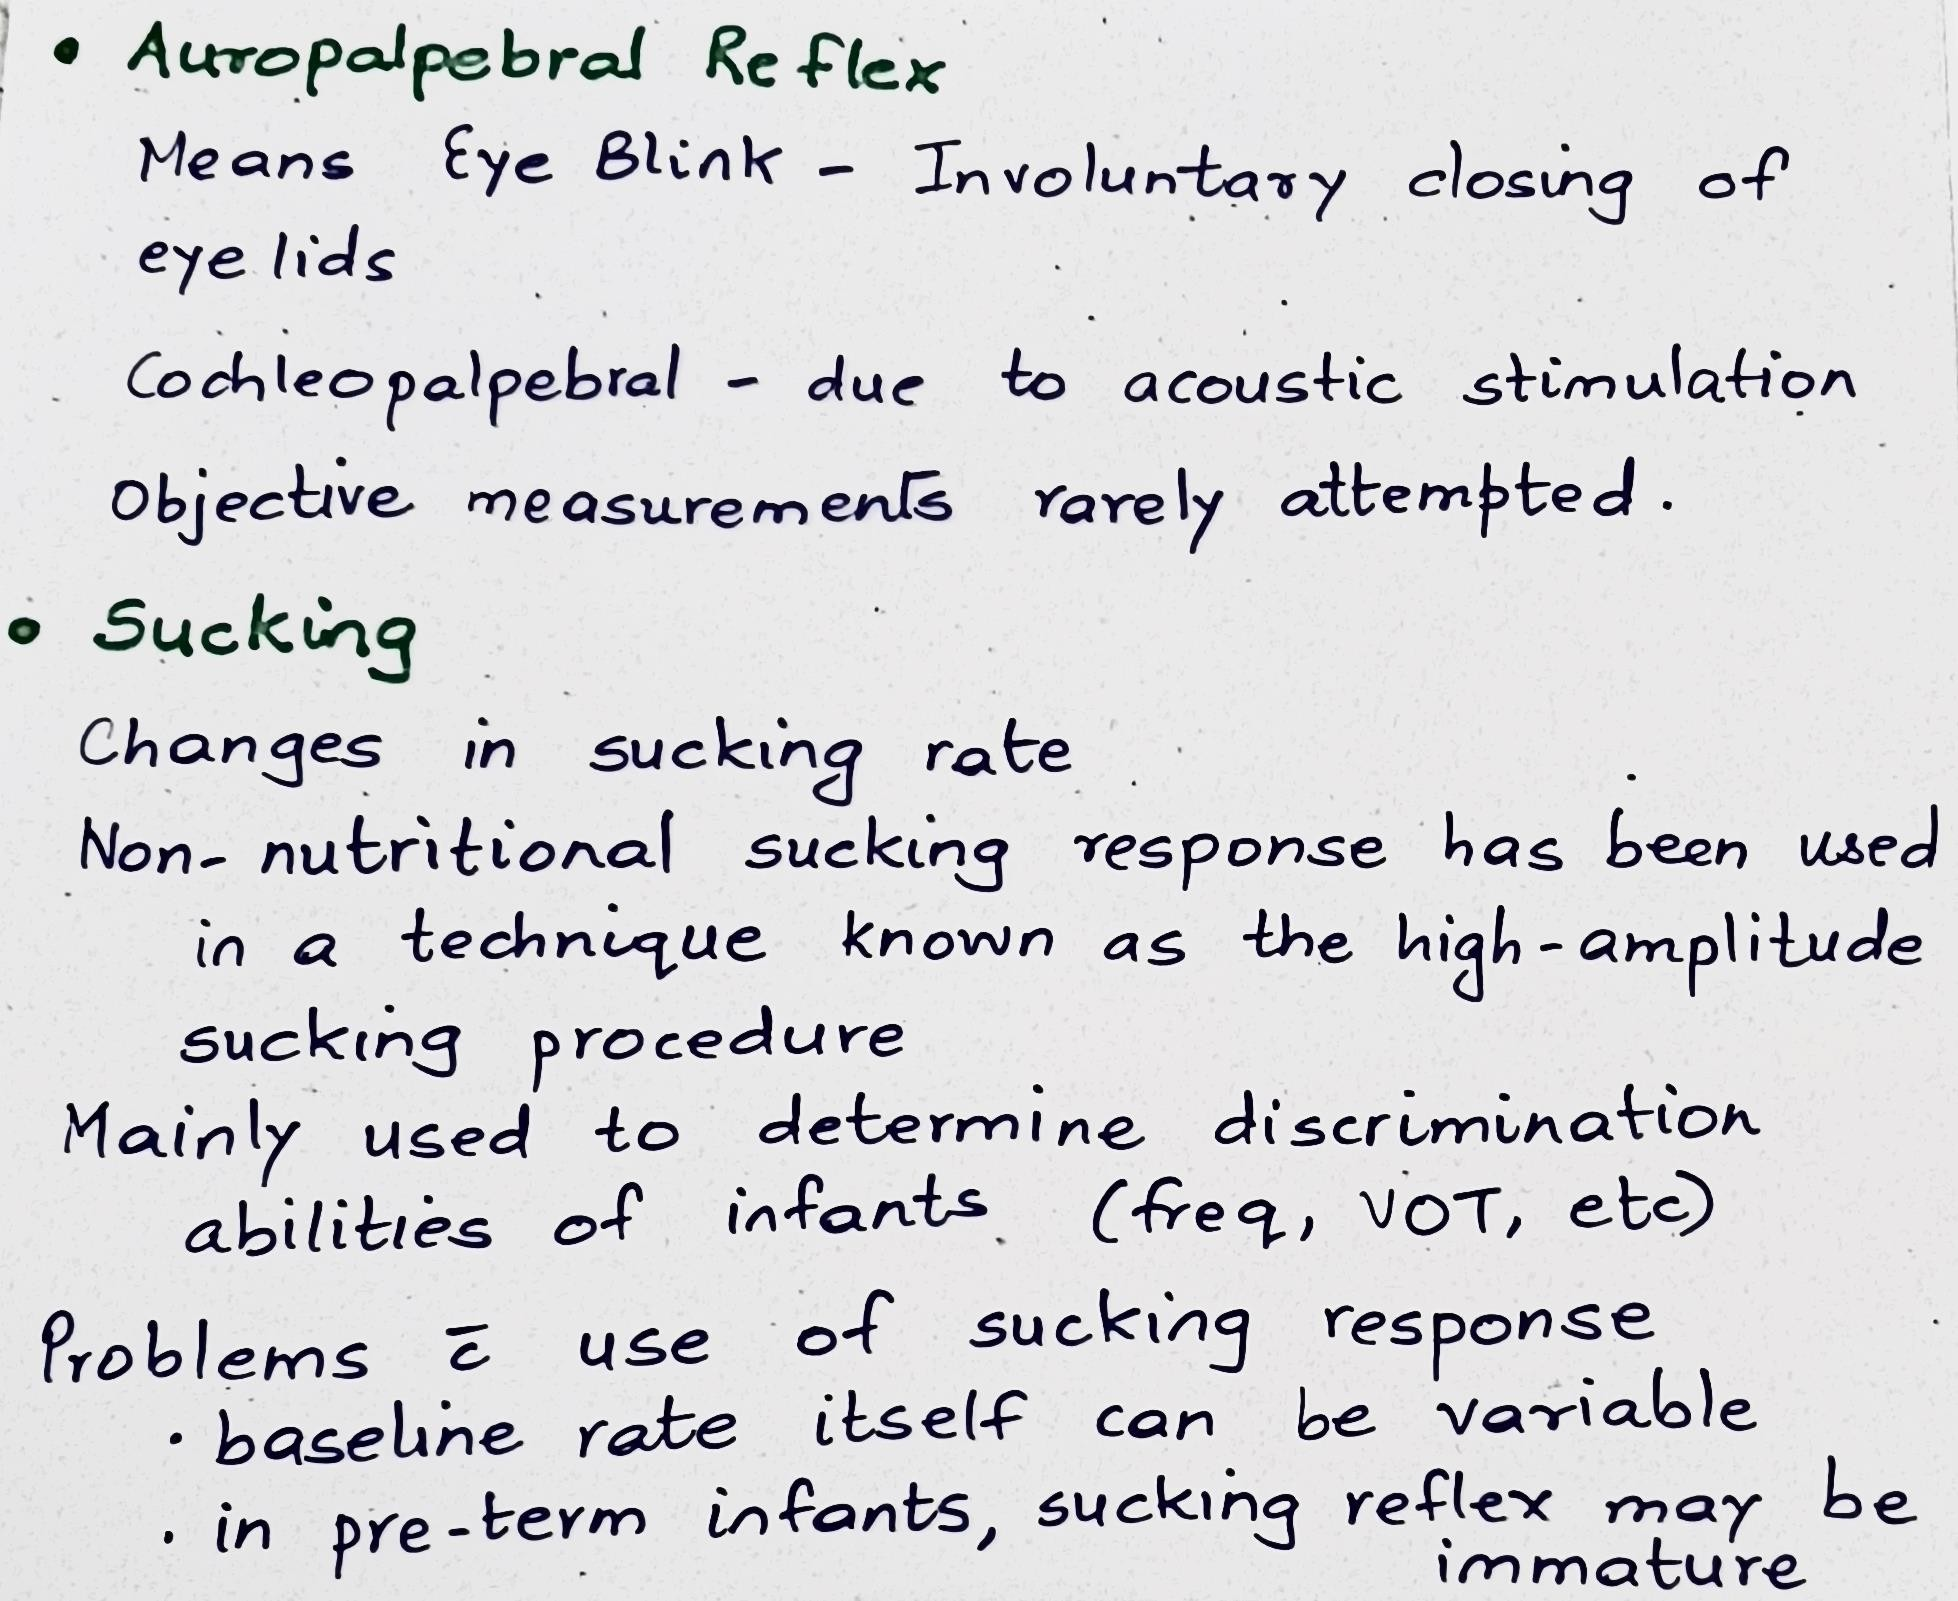 • Auropalpebral Reflex
Means Eye Blink - Involuntary closing of
eye lids
Cochleopalpebral - due to acoustic stimulation
Objective measurements rarely attempted.
• Sucking
Changes in sucking rate
Non-nutritional sucking response has been used
in a technique known as the high-amplitude
sucking procedure
Mainly used to determine discrimination
abilities of infants (freq, VOT, etc)
Problems c̄ use of sucking response
• baseline rate itself can be variable
• in pre-term infants, sucking reflex may be
immature